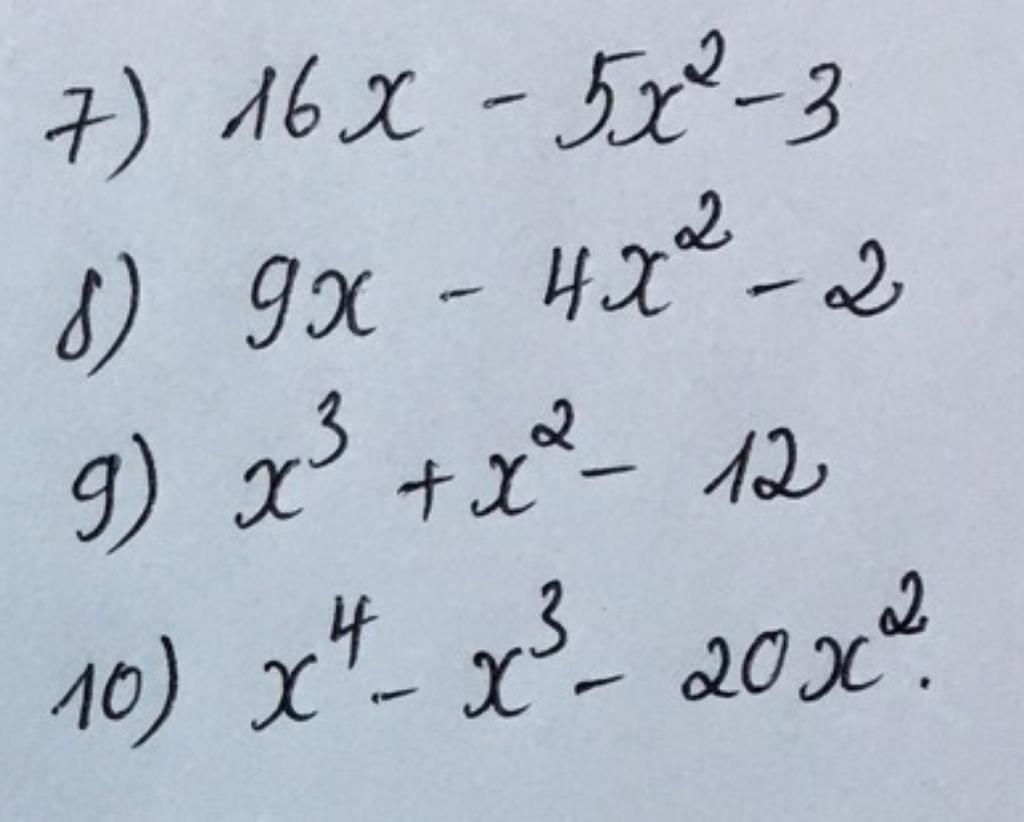 7) 16x - 5x² - 3
8) 9x - 4x² - 2
9) x³ + x² - 12
10) x⁴ - x³ - 20x².